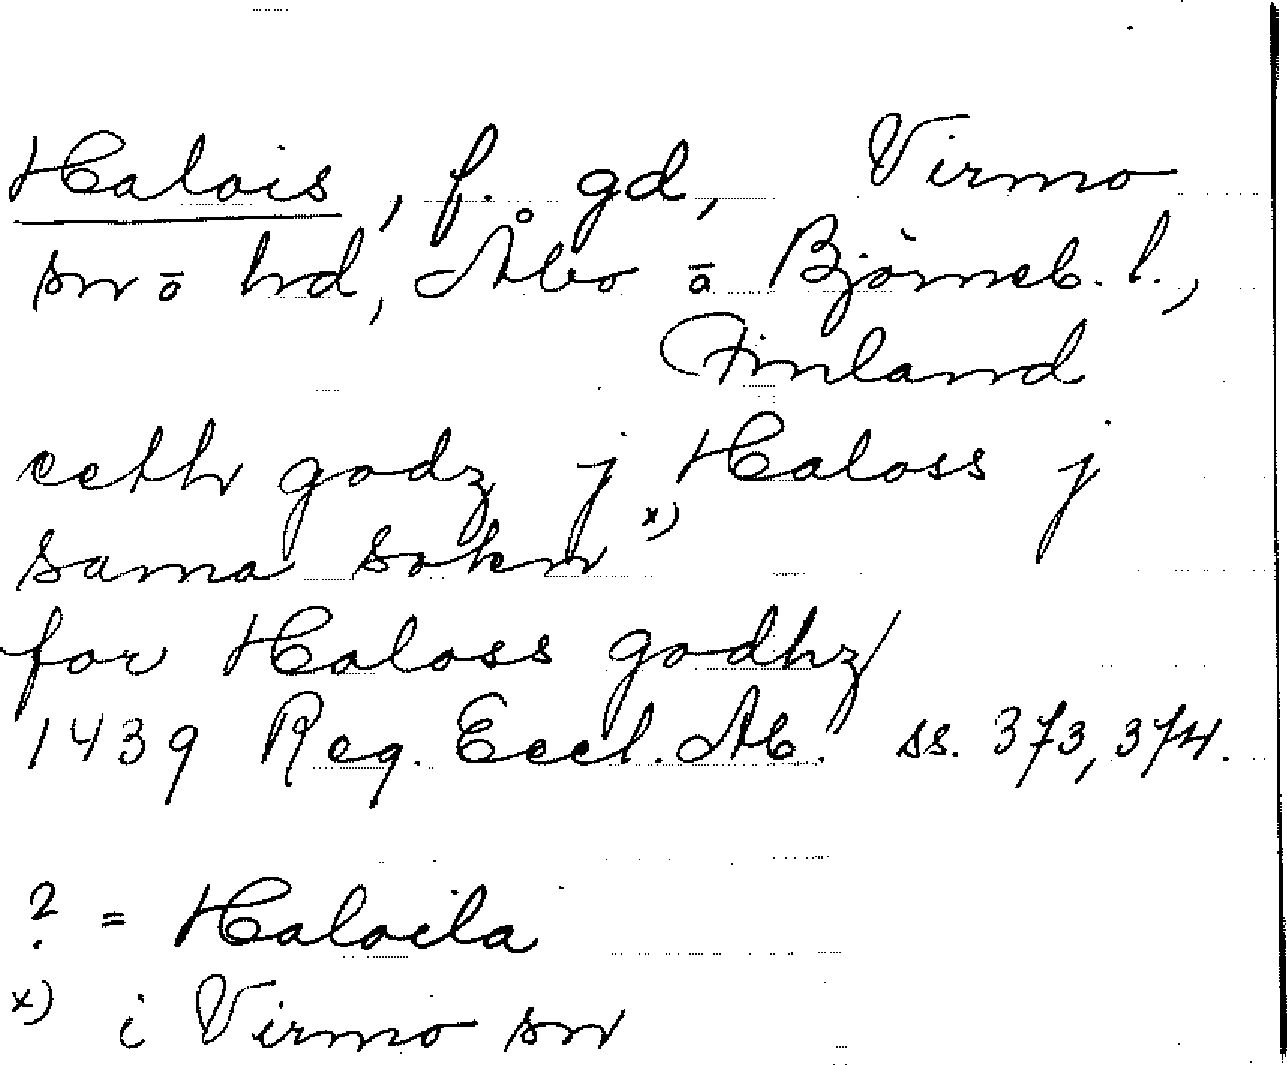 Halois, f. gd, Virmo
sn ō hd, Åbo ō Björneb. l.,
Finland
eeth godz j Haloss j
sama sokn x)
for Haloss godhz/
1439 Reg. Eccl. Ab. ss. 373, 374.
? = Haloila
x) i Virmo sn